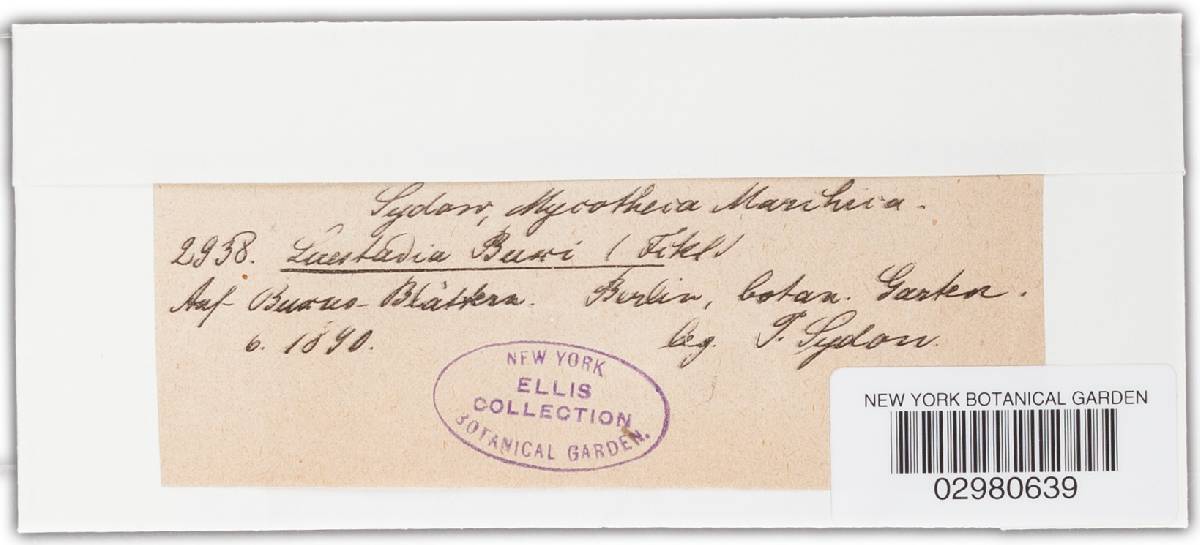 Sydow, Mycotheca Marchica.
2938. Laestadia Buxi (Fckl)
Auf Buxus-Blättern. Berlin, botan. Garten.
6. 1890. leg. P. Sydow.
NEW YORK
ELLIS
COLLECTION
BOTANICAL GARDEN.
NEW YORK BOTANICAL GARDEN
02980639